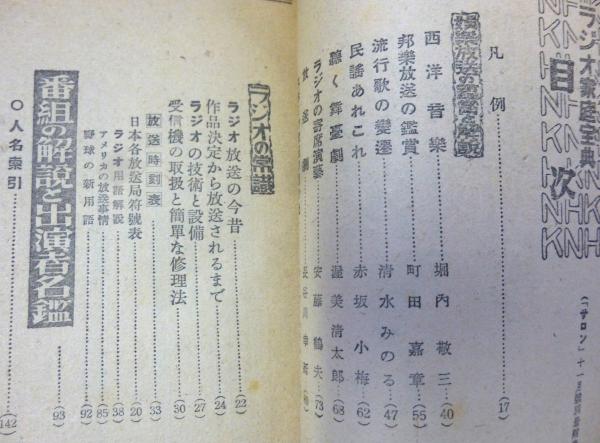 ラジオ家庭宝典
目次
NHK
凡例………(17)
娯楽放送の鑑賞と解説
西洋音樂 堀内敬三…(40)
邦樂放送の鑑賞 町田嘉章…(55)
流行歌の變遷 清水みのる…(47)
民謡あれこれ 赤坂小梅…(62)
聽く舞臺劇 渥美清太郎…(68)
ラジオの寄席演藝 安藤鶴夫…(73)
放送劇 長谷川幸延
ラジオの常識
ラジオ放送の今昔………(22)
作品決定から放送されるまで………(24)
ラジオの技術と設備………(27)
受信機の取扱と簡單な修理法………(30)
放送時刻表………(33)
日本各放送局符號表………(20)
ラジオ用語解説………(38)
アメリカの放送事情………(85)
野球の新用語………(92)
番組の解説と出演者名鑑………(93)
○人名索引………(142)